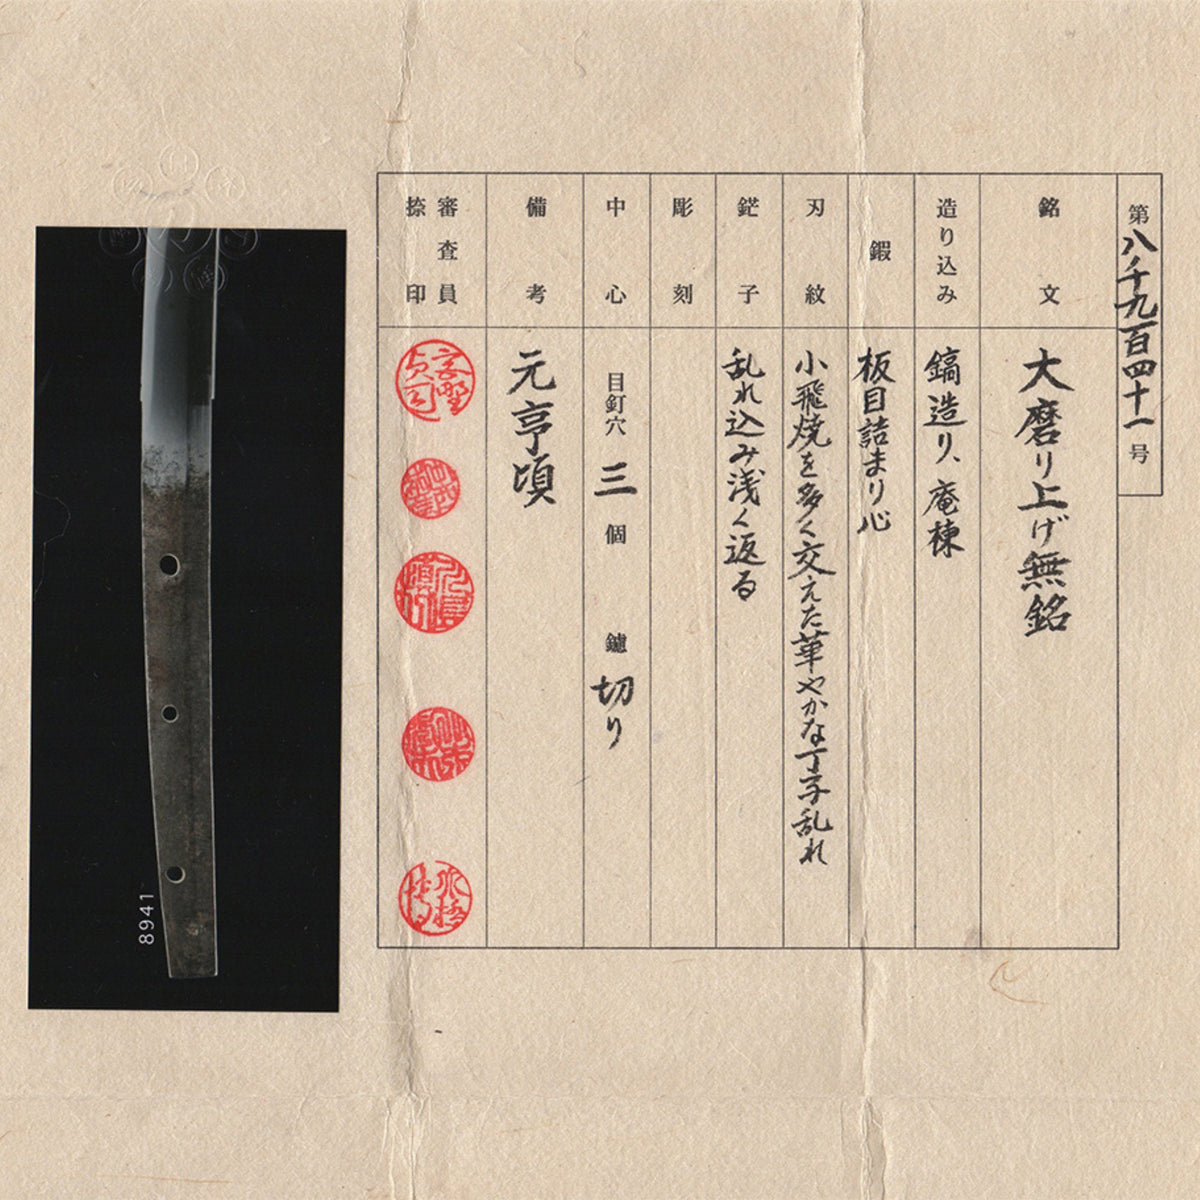 第八千九百四十一号
銘文
大磨り上げ無銘
造り込み
鎬造り、庵棟
鍜
板目詰まり心
刃紋
小飛焼を多く交えた華やかな丁子乱れ
鋩子
乱れ込み浅く返る
彫刻
中心
目釘穴 三 個 鑢 切り
備考
元亨頃
審査員
捺印
8941